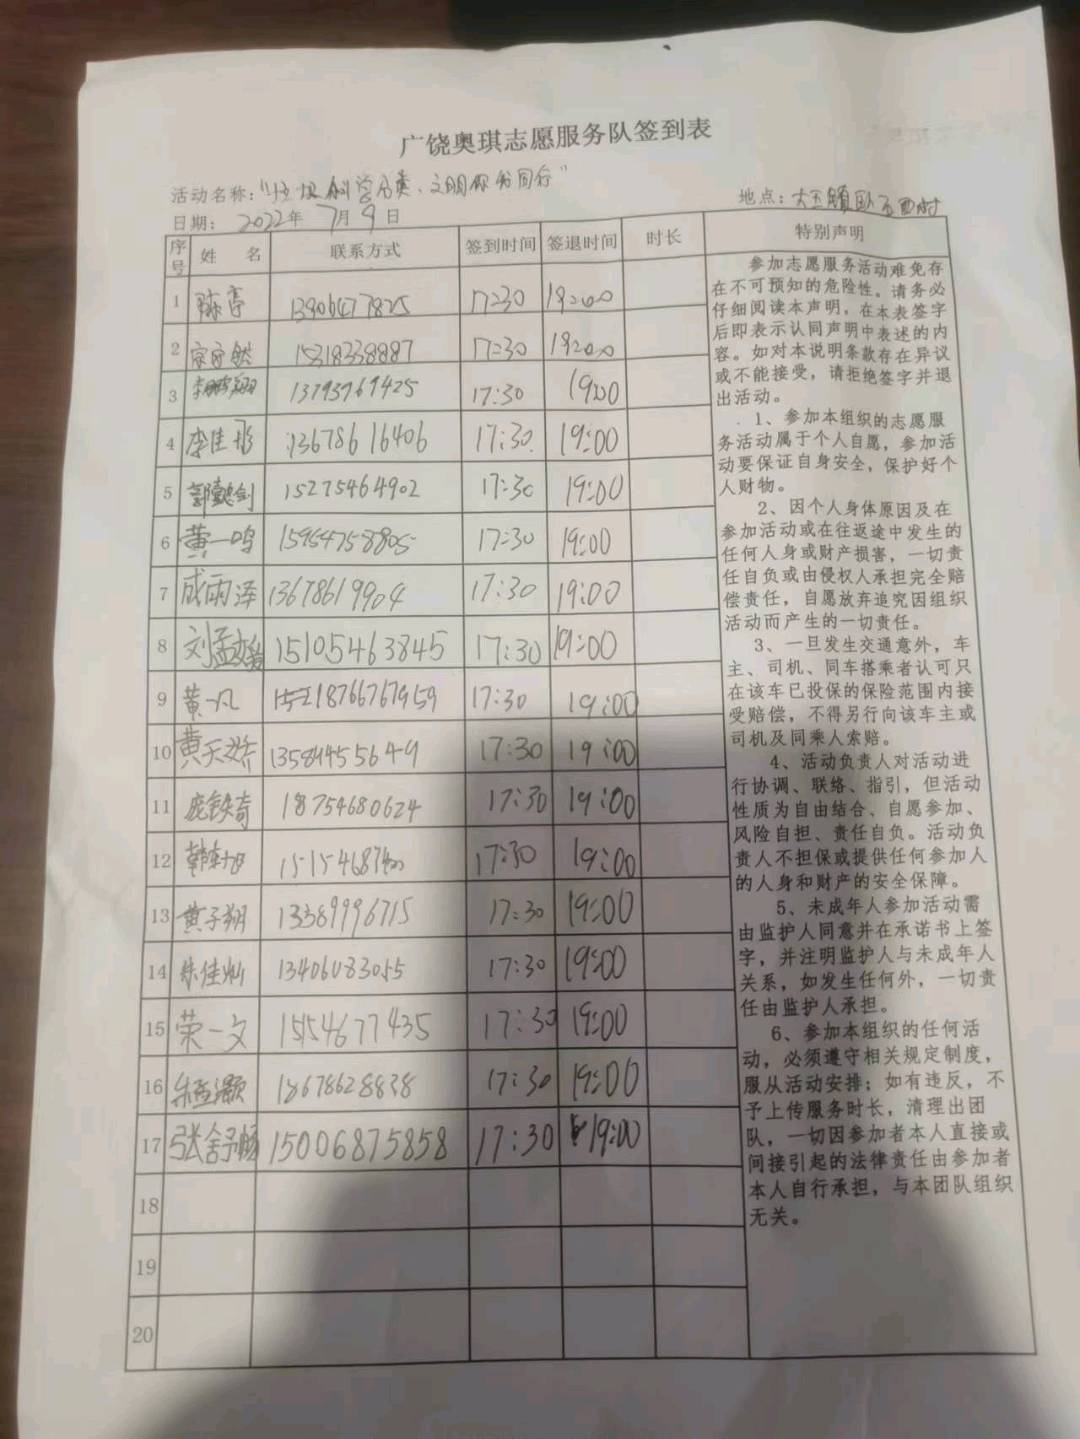 广饶奥琪志愿服务队签到表
活动名称："垃圾科学分类、文明你我同行"
地点：大王镇卧石西村
日期： 2022年 7月 9日
序号 姓 名 联系方式 签到时间 签退时间 时长 特别声明
1 陈亭 13906477825 17:30 19:00
2 15318338887 17:30 19:00
3 李鹏翔 13793769425 17:30 19:00
4 李佳彤 13678616406 17:30 19:00
5 郭懿剑 15275464902 17:30 19:00
6 黄一鸣 15954758805 17:30 19:00
7 成雨泽 13678619904 17:30 19:00
8 刘孟媛 15105463845 17:30 19:00
9 黄一凡 18766767959 17:30 19:00
10 黄天娇 13589455649 17:30 19:00
11 庞铁奇 18754680624 17:30 19:00
12 17:30 19:00
13 黄子翔 13389996715 17:30 19:00
14 朱佳灿 13406083055 17:30 19:00
15 荣一文 15154677435 17:30 19:00
16 18678628838 17:30 19:00
17 张舒畅 15006875858 17:30 19:00
18
19
20
参加志愿服务活动难免存
在不可预知的危险性。请务必
仔细阅读本声明，在本表签字
后即表示认同声明中表述的内
容。如对本说明条款存在异议
或不能接受，请拒绝签字并退
出活动。
1、参加本组织的志愿服
务活动属于个人自愿，参加活
动要保证自身安全，保护好个
人财物。
2、因个人身体原因及在
参加活动或在往返途中发生的
任何人身或财产损害，一切责
任自负或由侵权人承担完全赔
偿责任，自愿放弃追究因组织
活动而产生的一切责任。
3、一旦发生交通意外，车
主、司机、同车搭乘者认可只
在该车已投保的保险范围内接
受赔偿，不得另行向该车主或
司机及同乘人索赔。
4、活动负责人对活动进
行协调、联络、指引，但活动
性质为自由结合、自愿参加、
风险自担、责任自负。活动负
责人不担保或提供任何参加人
的人身和财产的安全保障。
5、未成年人参加活动需
由监护人同意并在承诺书上签
字，并注明监护人与未成年人
关系，如发生任何外，一切责
任由监护人承担。
6、参加本组织的任何活
动，必须遵守相关规定制度，
服从活动安排；如有违反，不
予上传服务时长，清理出团
队，一切因参加者本人直接或
间接引起的法律责任由参加者
本人自行承担，与本团队组织
无关。